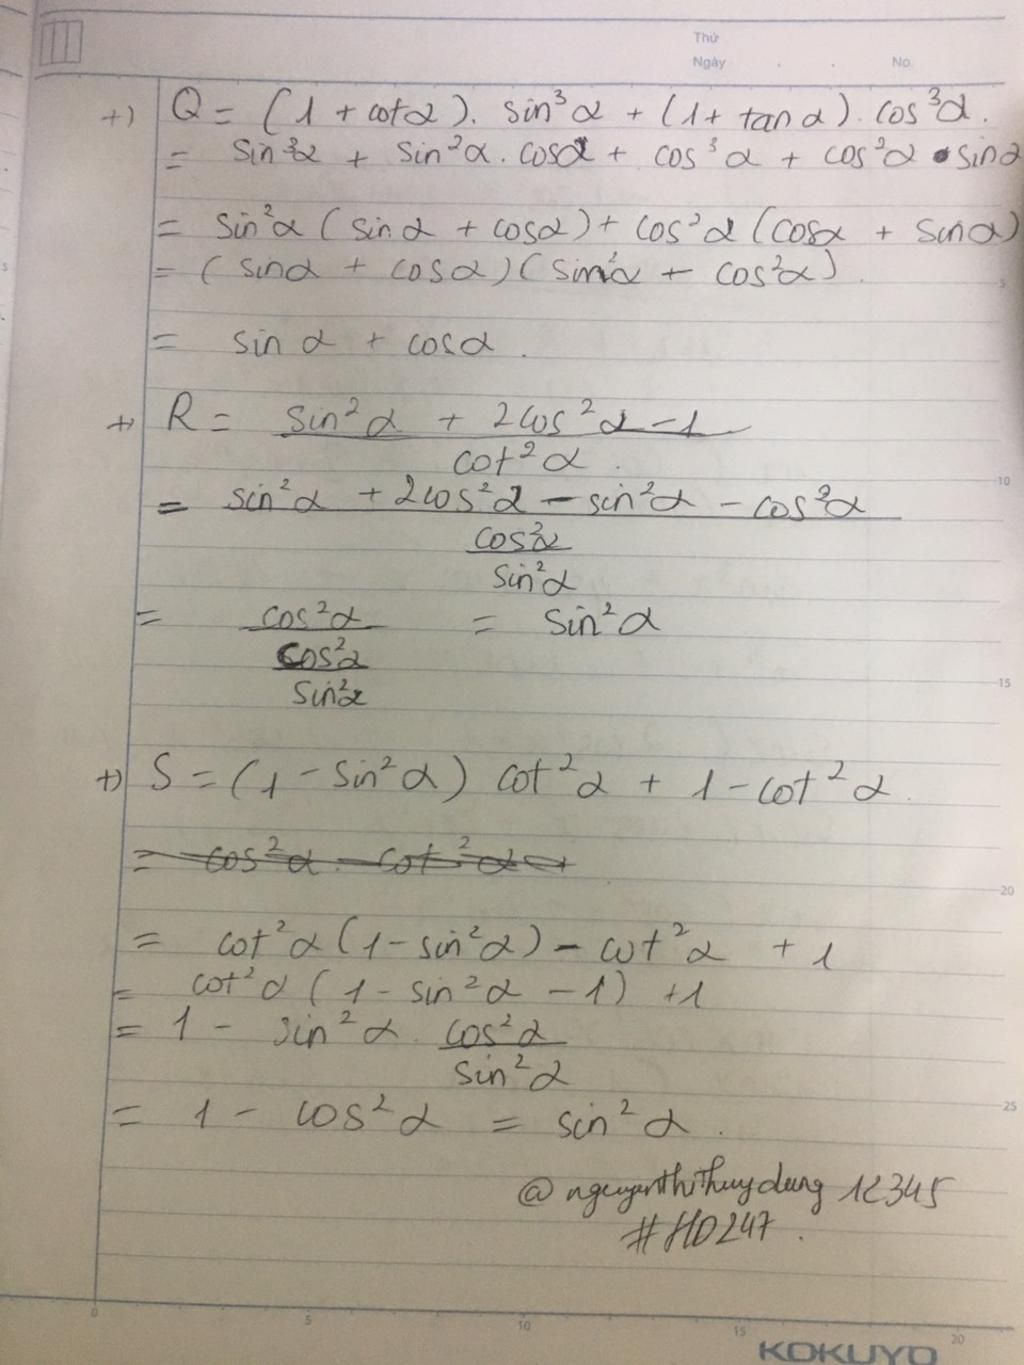 Thứ
Ngày . . No.
+) Q = (1 + cotα). sin³α + (1 + tanα). cos³α.
= sin³α + sin²α. cosα + cos³α + cos²α . sinα
= sin²α (sinα + cosα) + cos²α (cosα + sinα)
= (sinα + cosα)(sin²α + cos²α).
= sinα + cosα.
+) R = (sin²α + 2cos²α - 1) / cot²α.
= (sin²α + 2cos²α - sin²α - cos²α) / (cos²α / sin²α)
= cos²α / (cos²α / sin²α) = sin²α
+) S = (1 - sin²α) cot²α + 1 - cot²α.
= cos²α. cot²α +
= cot²α (1 - sin²α) - cot²α + 1
= cot²α (1 - sin²α - 1) + 1
= 1 - sin²α. cos²α / sin²α
= 1 - cos²α = sin²α.
@nguyenthithuydung12345
#HD247.
5
10
15
20
25
0 5 10 15 20
KOKUYO